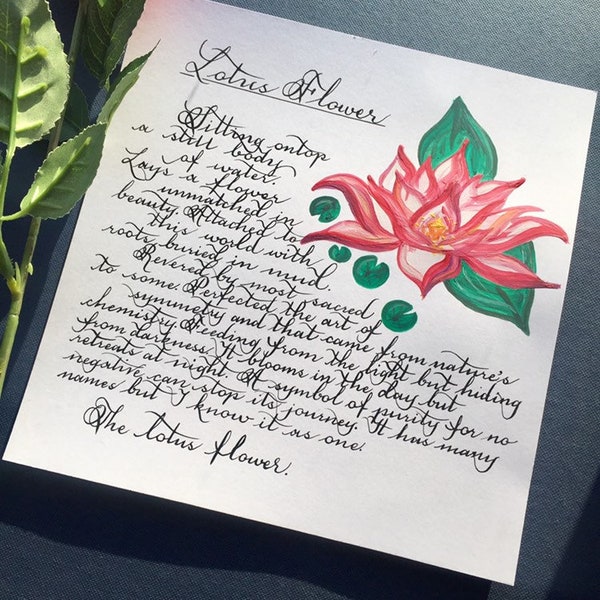 Lotus Flower
Sitting ontop
a still body
of water.
Lays a flower
unmatched in
beauty. Attached to
this world with
roots buried in mud.
Revered by most sacred
to some. Perfected the art of
symmetry and that came from nature's
chemistry. Feeding from the light but hiding
from darkness. It blooms in the day but
retreats at night. A symbol of purity for no
negative can stop its journey. It has many
names but I know it as one.
The lotus flower.